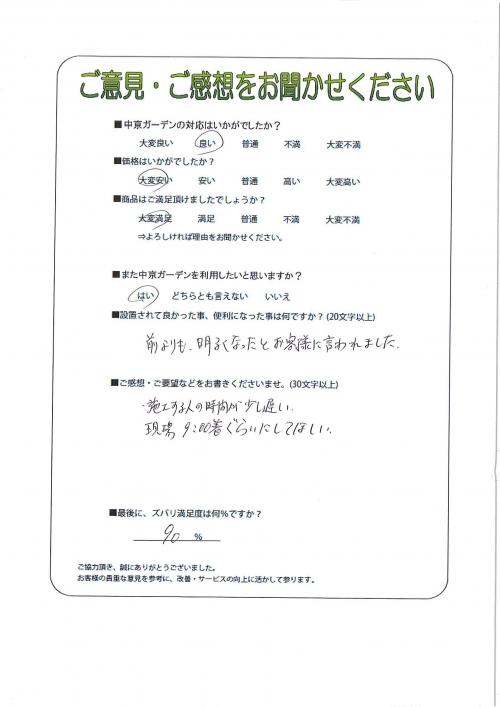 ご意見・ご感想をお聞かせください
■中京ガーデンの対応はいかがでしたか?
大変良い 良い 普通 不満 大変不満
■価格はいかがでしたか?
大変安い 安い 普通 高い 大変高い
■商品はご満足頂けましたでしょうか?
大変満足 満足 普通 不満 大変不満
⇒よろしければ理由をお聞かせください。
■また中京ガーデンを利用したいと思いますか?
はい どちらとも言えない いいえ
■設置されて良かった事、便利になった事は何ですか?(20文字以上)
前よりも、明るくなったとお客様に言われました。
■ご感想・ご要望などをお書きくださいませ。(30文字以上)
・施工する人の時間が少し遅い。
現場 9:00着ぐらいにしてほしい。
■最後に、ズバリ満足度は何%ですか?
90 %
ご協力頂き、誠にありがとうございました。
お客様の貴重な意見を参考に、改善・サービスの向上に活かして参ります。